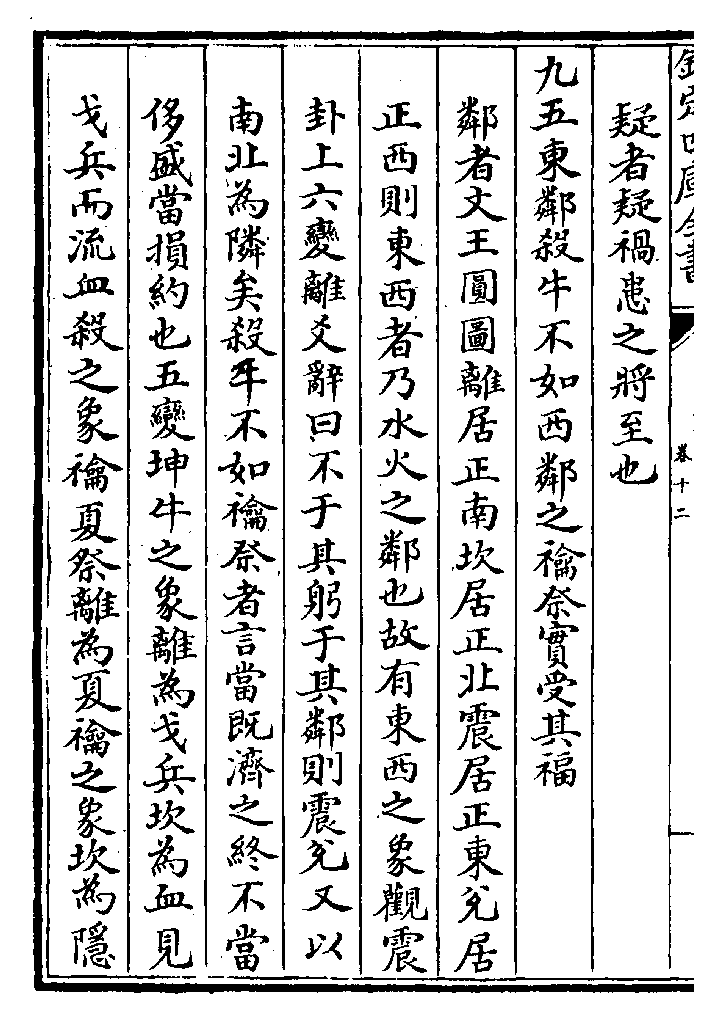 欽定四庫全書
卷十二
疑者疑禍患之將至也
九五東鄰殺牛不如西鄰之禴祭實受其福
鄰者文王圓圖離居正南坎居正北震居正東兊居
正西則東西者乃水火之鄰也故有東西之象觀震
卦上六變離爻辭曰不于其躬于其鄰則震兊又以
南北為隣矣殺牛不如禴祭者言當既濟之終不當
侈盛當損約也五變坤牛之象離為戈兵坎為血見
戈兵而流血殺之象禴夏祭離為夏禴之象坎為隱